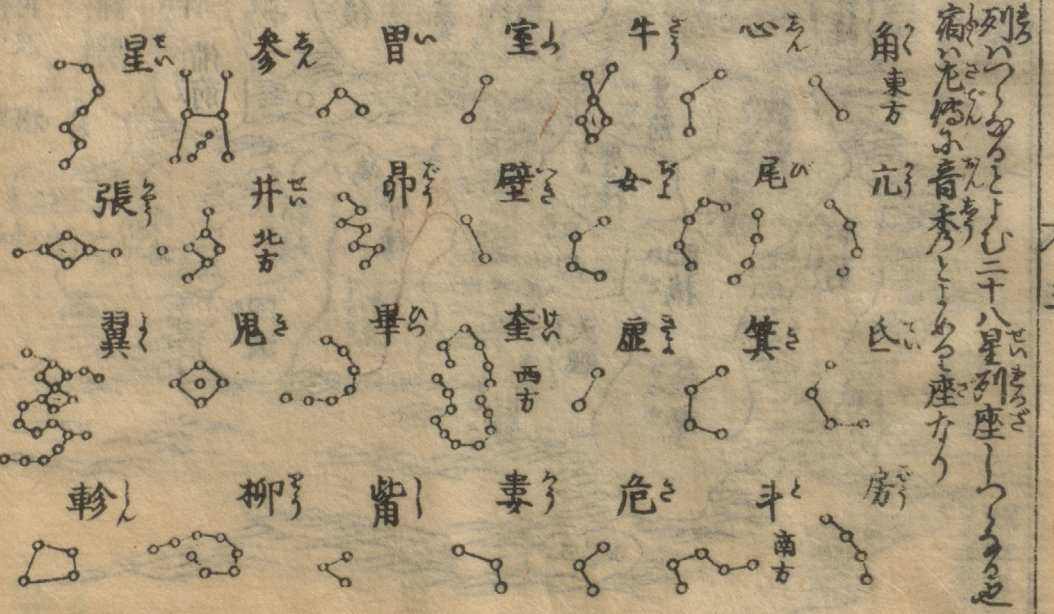 列ハつらなるとよむ二十八星列座しつらなる也
宿ハ左傳に音秀とよめる座なり
角 東方
亢
氐
房
心
尾
箕
斗 南方
牛
女
虚
危
室
壁
奎 西方
婁
胃
昴
畢
觜
参
井 北方
鬼
柳
星
張
翼
軫